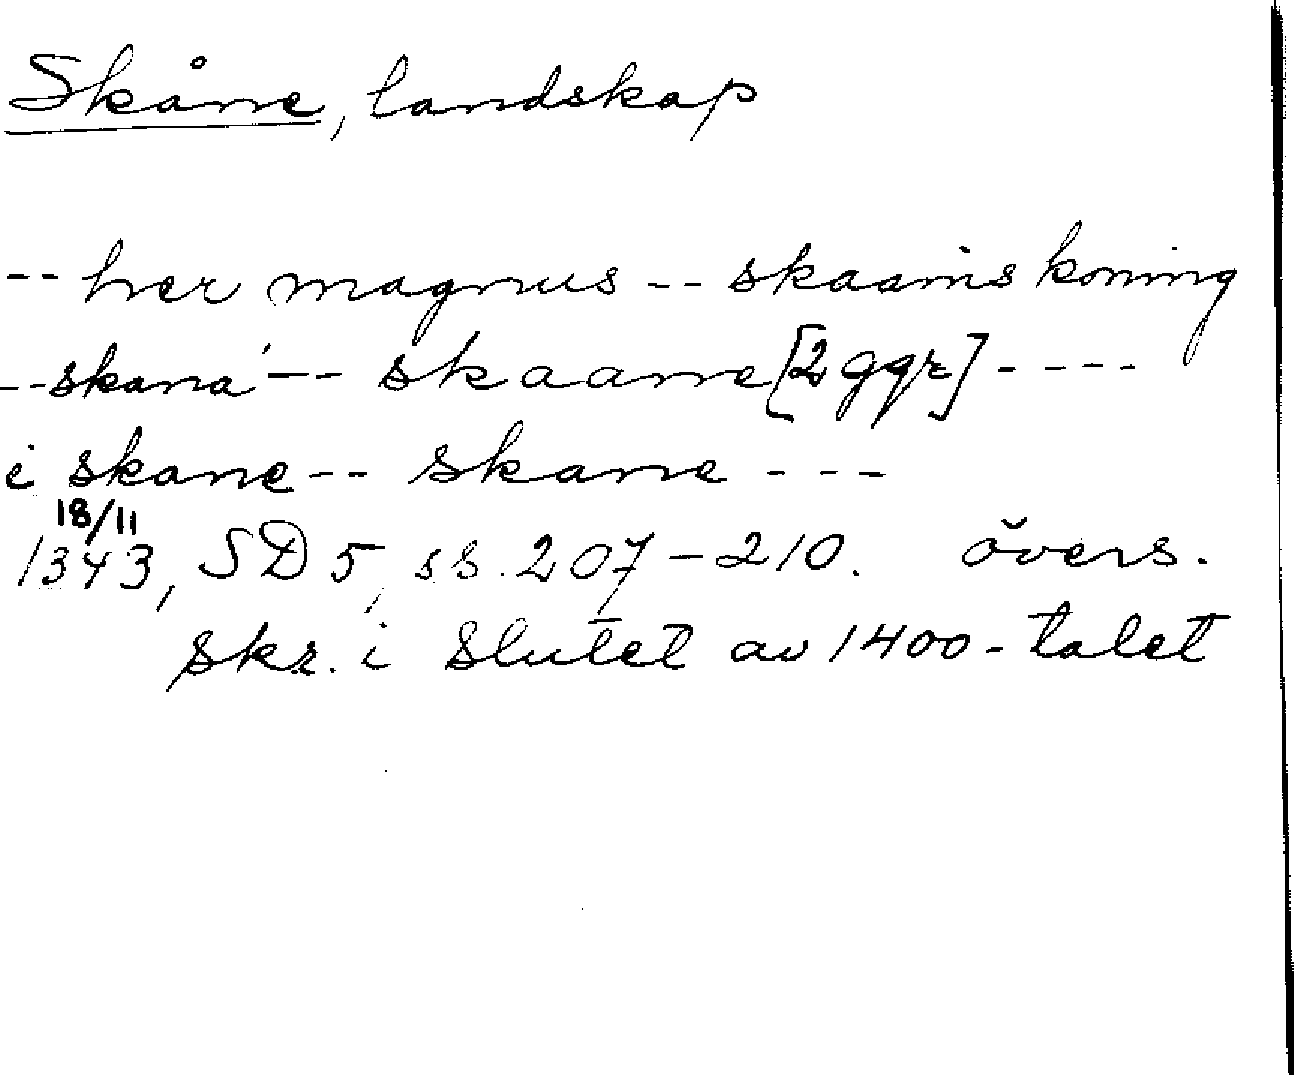 Skåne, landskap
-- her magnus -- skaanis koning
-- skana' -- skaane [2 ggr] ----
i skane -- skane ---
18/11
1343, SD 5, ss. 207-210. övers.
skr. i slutet av 1400-talet